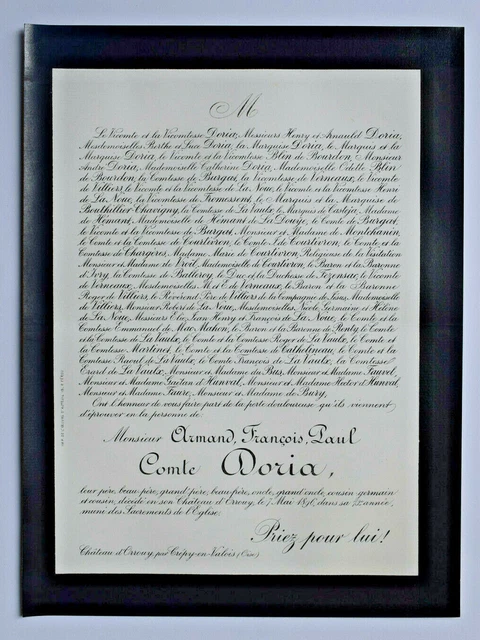 M
Le Vicomte et la Vicomtesse Doria, Messieurs Henry et Arnauld Doria,
Mesdemoiselles Berthe et Luce Doria, la Marquise Doria, le Marquis et la
Marquise Doria, le Vicomte et la Vicomtesse Blin de Bourdon, Monsieur
André Doria, Mademoiselle Catherine Doria, Mademoiselle Odette Blin
de Bourdon, la Comtesse de Burgat, la Vicomtesse de Verneaux, le Vicomte
de Villiers, le Vicomte et la Vicomtesse de La Noue, le Vicomte et la Vicomtesse Henri
de La Noue, la Vicomtesse de Fromessent, le Marquis et la Marquise de
Bouthillier Chavigny, la Comtesse de La Vaulx, le Marquis de Casteja, Madame
de Hémant, Mademoiselle de Hémant de La Douije, le Comte de Burgat,
le Vicomte et la Vicomtesse de Burgat, Monsieur et Madame de Montchanin,
le Comte et la Comtesse de Courtivron, le Comte J. de Courtivron, le Comte et la
Comtesse de Chargères, Madame Marie de Courtivron Religieuse de la Visitation
Monsieur et Madame de Mademoiselle de Courtivron, le Baron et la Baronne
d'Ivry, la Comtesse de Balleroy, le Duc et la Duchesse de Fezensac, le Vicomte
de Verneaux, Mesdemoiselles M. et E. de Verneaux, le Baron et la Baronne
Roger de Villiers, le Révérend Père de Villiers de la Compagnie de Jésus, Mademoiselle
de Villiers, Monsieur Robert de La Noue, Mesdemoiselles, Nicole, Germaine et Hélène
de La Noue, Messieurs Elie, Jean Henry et François de La Noue, le Comte et la
Comtesse Emmanuel de Mac Mahon, le Baron et la Baronne de Renty, le Comte et la
Comtesse de La Vaulx, le Comte et la Comtesse Roger de La Vaulx, le Comte et
la Comtesse Martinet, le Comte et la Comtesse de Cathelineau, le Comte et la
Comtesse Raoul de La Vaulx, le Comte François de La Vaulx, la Comtesse
Erard de La Vaulx, Monsieur et Madame du Bus, Monsieur et Madame Fauvel,
Monsieur et Madame Gaëtan d'Hanval, Monsieur et Madame Hector d'Hanval,
Monsieur et Madame Faure, Monsieur et Madame de Bury,
Ont l'honneur de vous faire part de la perte douloureuse qu'ils viennent
d'éprouver en la personne de
Monsieur Armand, François, Paul
Comte Doria,
leur père, beau-père, grand'père, beau-frère, oncle, grand oncle, cousin germain
et cousin, décédé en son Château d'Orrouy, le 7 Mai 1896, dans sa année,
muni des Sacrements de l'Eglise.
Priez pour lui!
Château d'Orrouy, par Crépy-en-Valois (Oise)